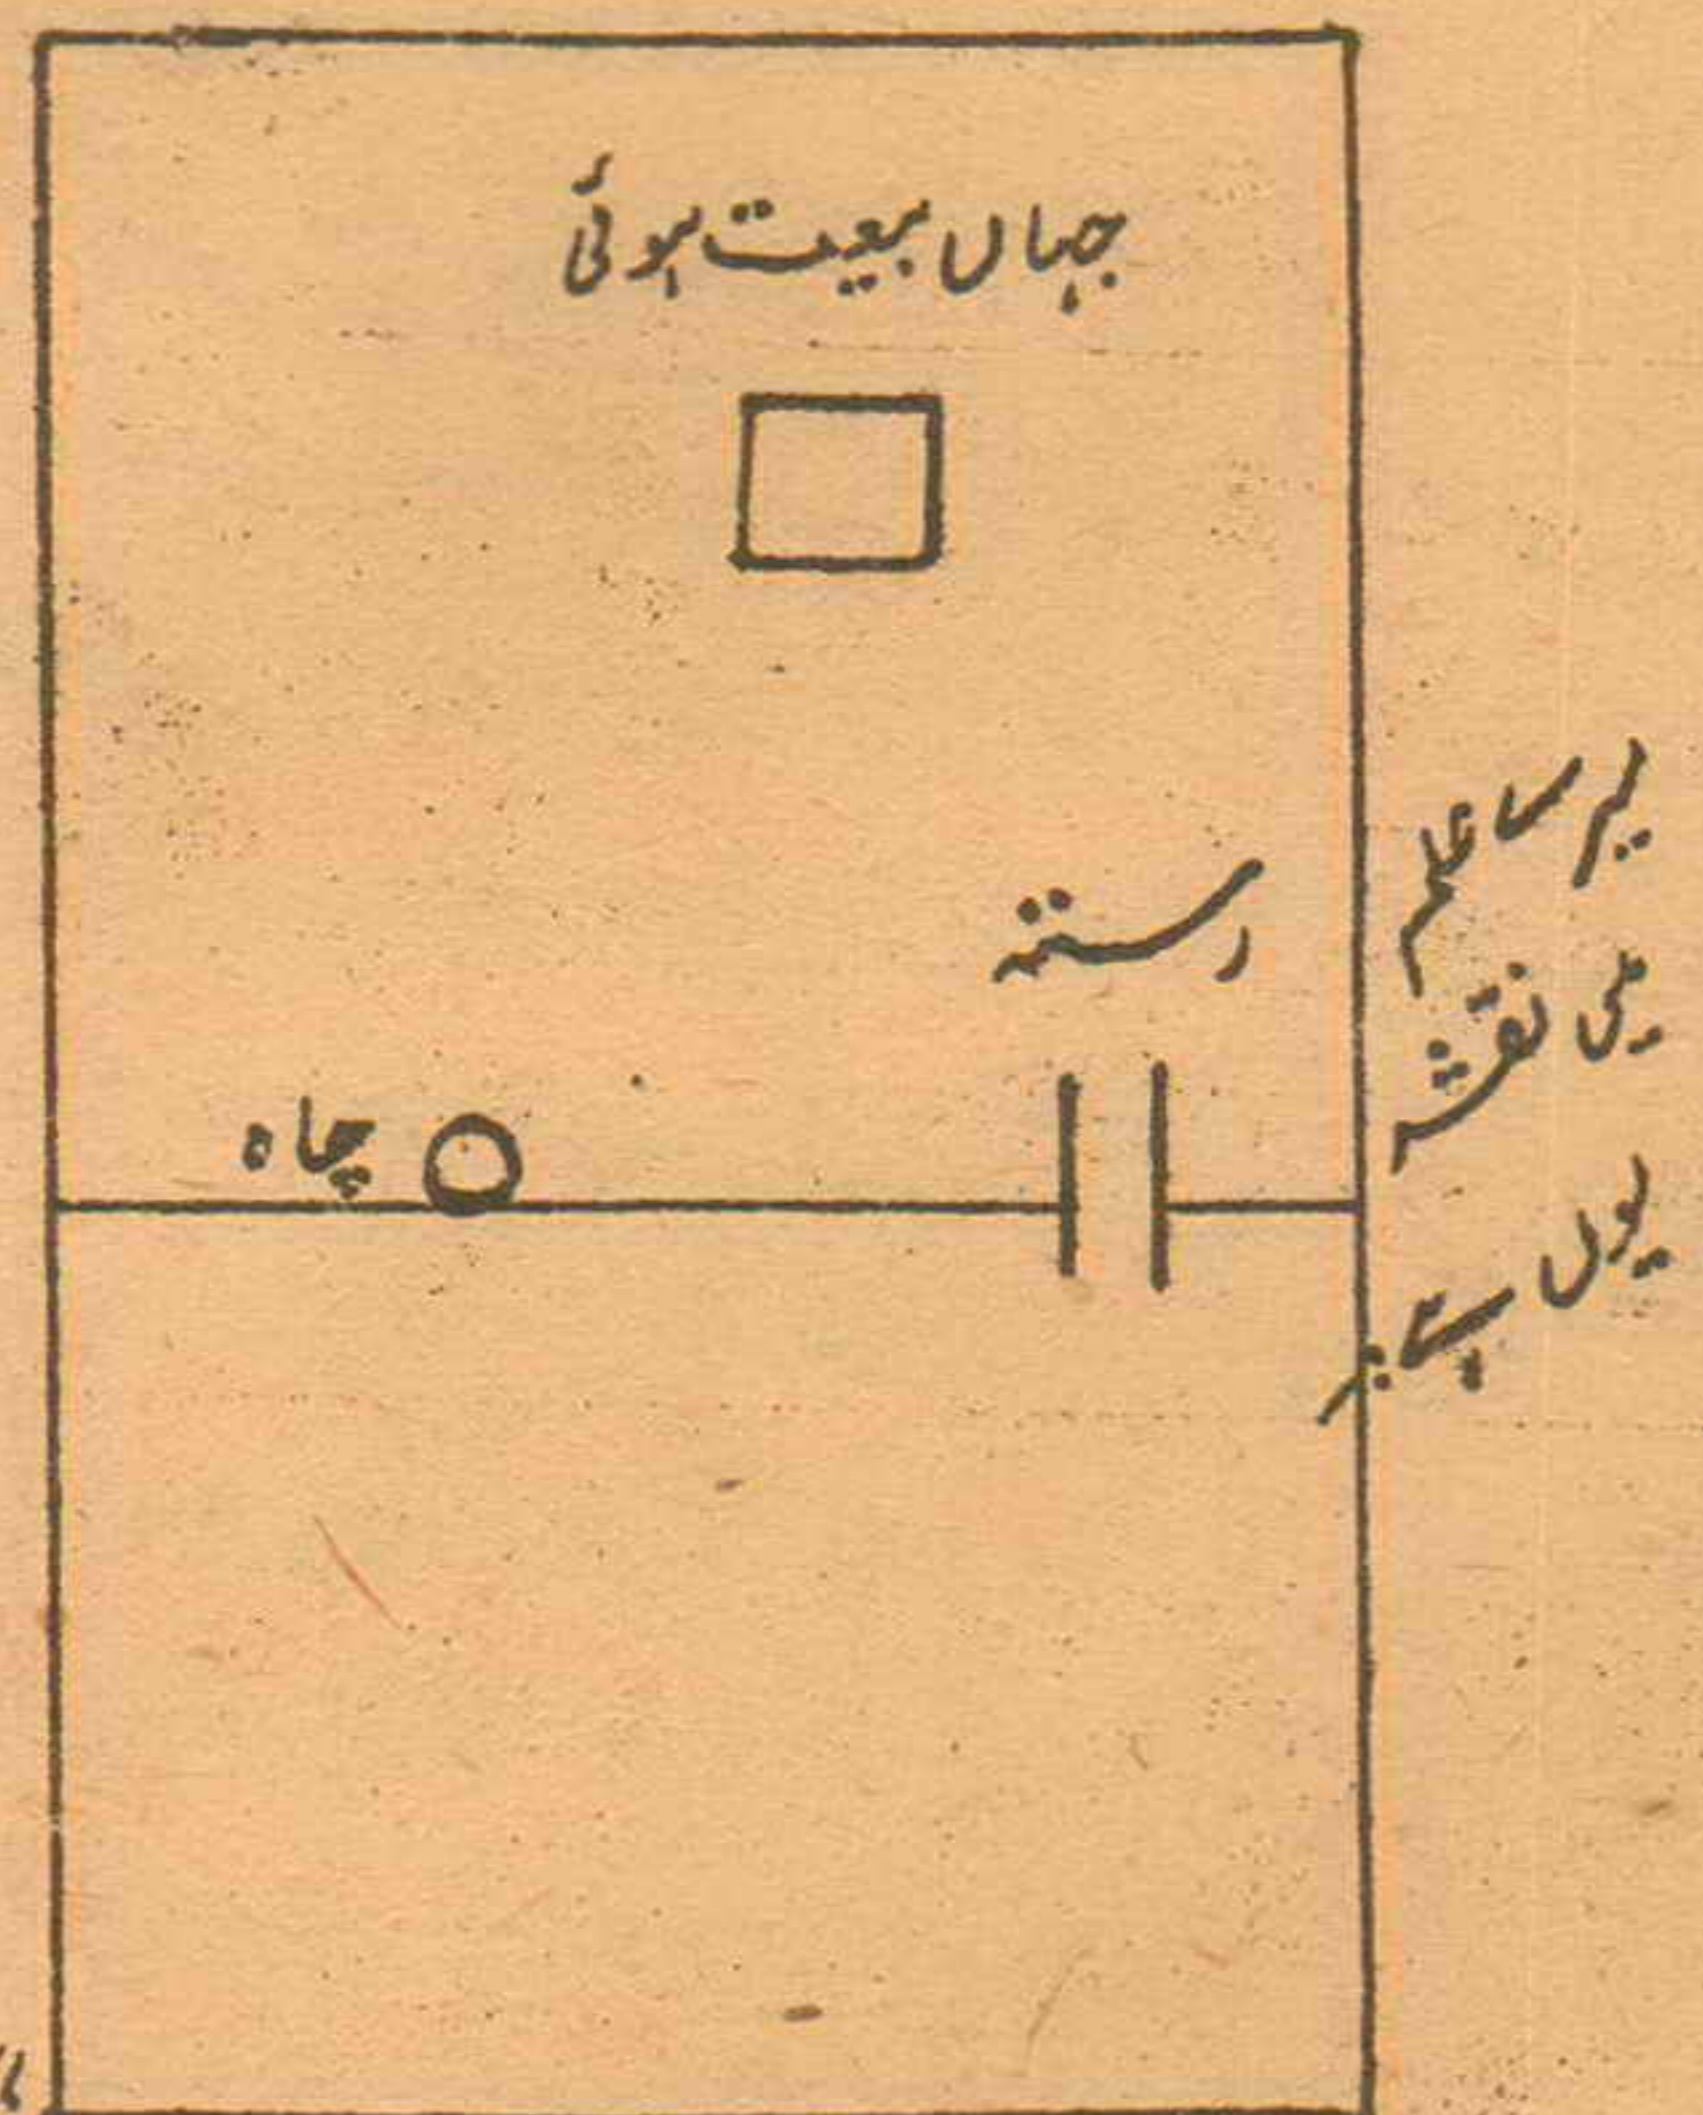 جہاں بیعت ہوئی
رستہ
چاہ
علم
نقشہ
یوں ہے